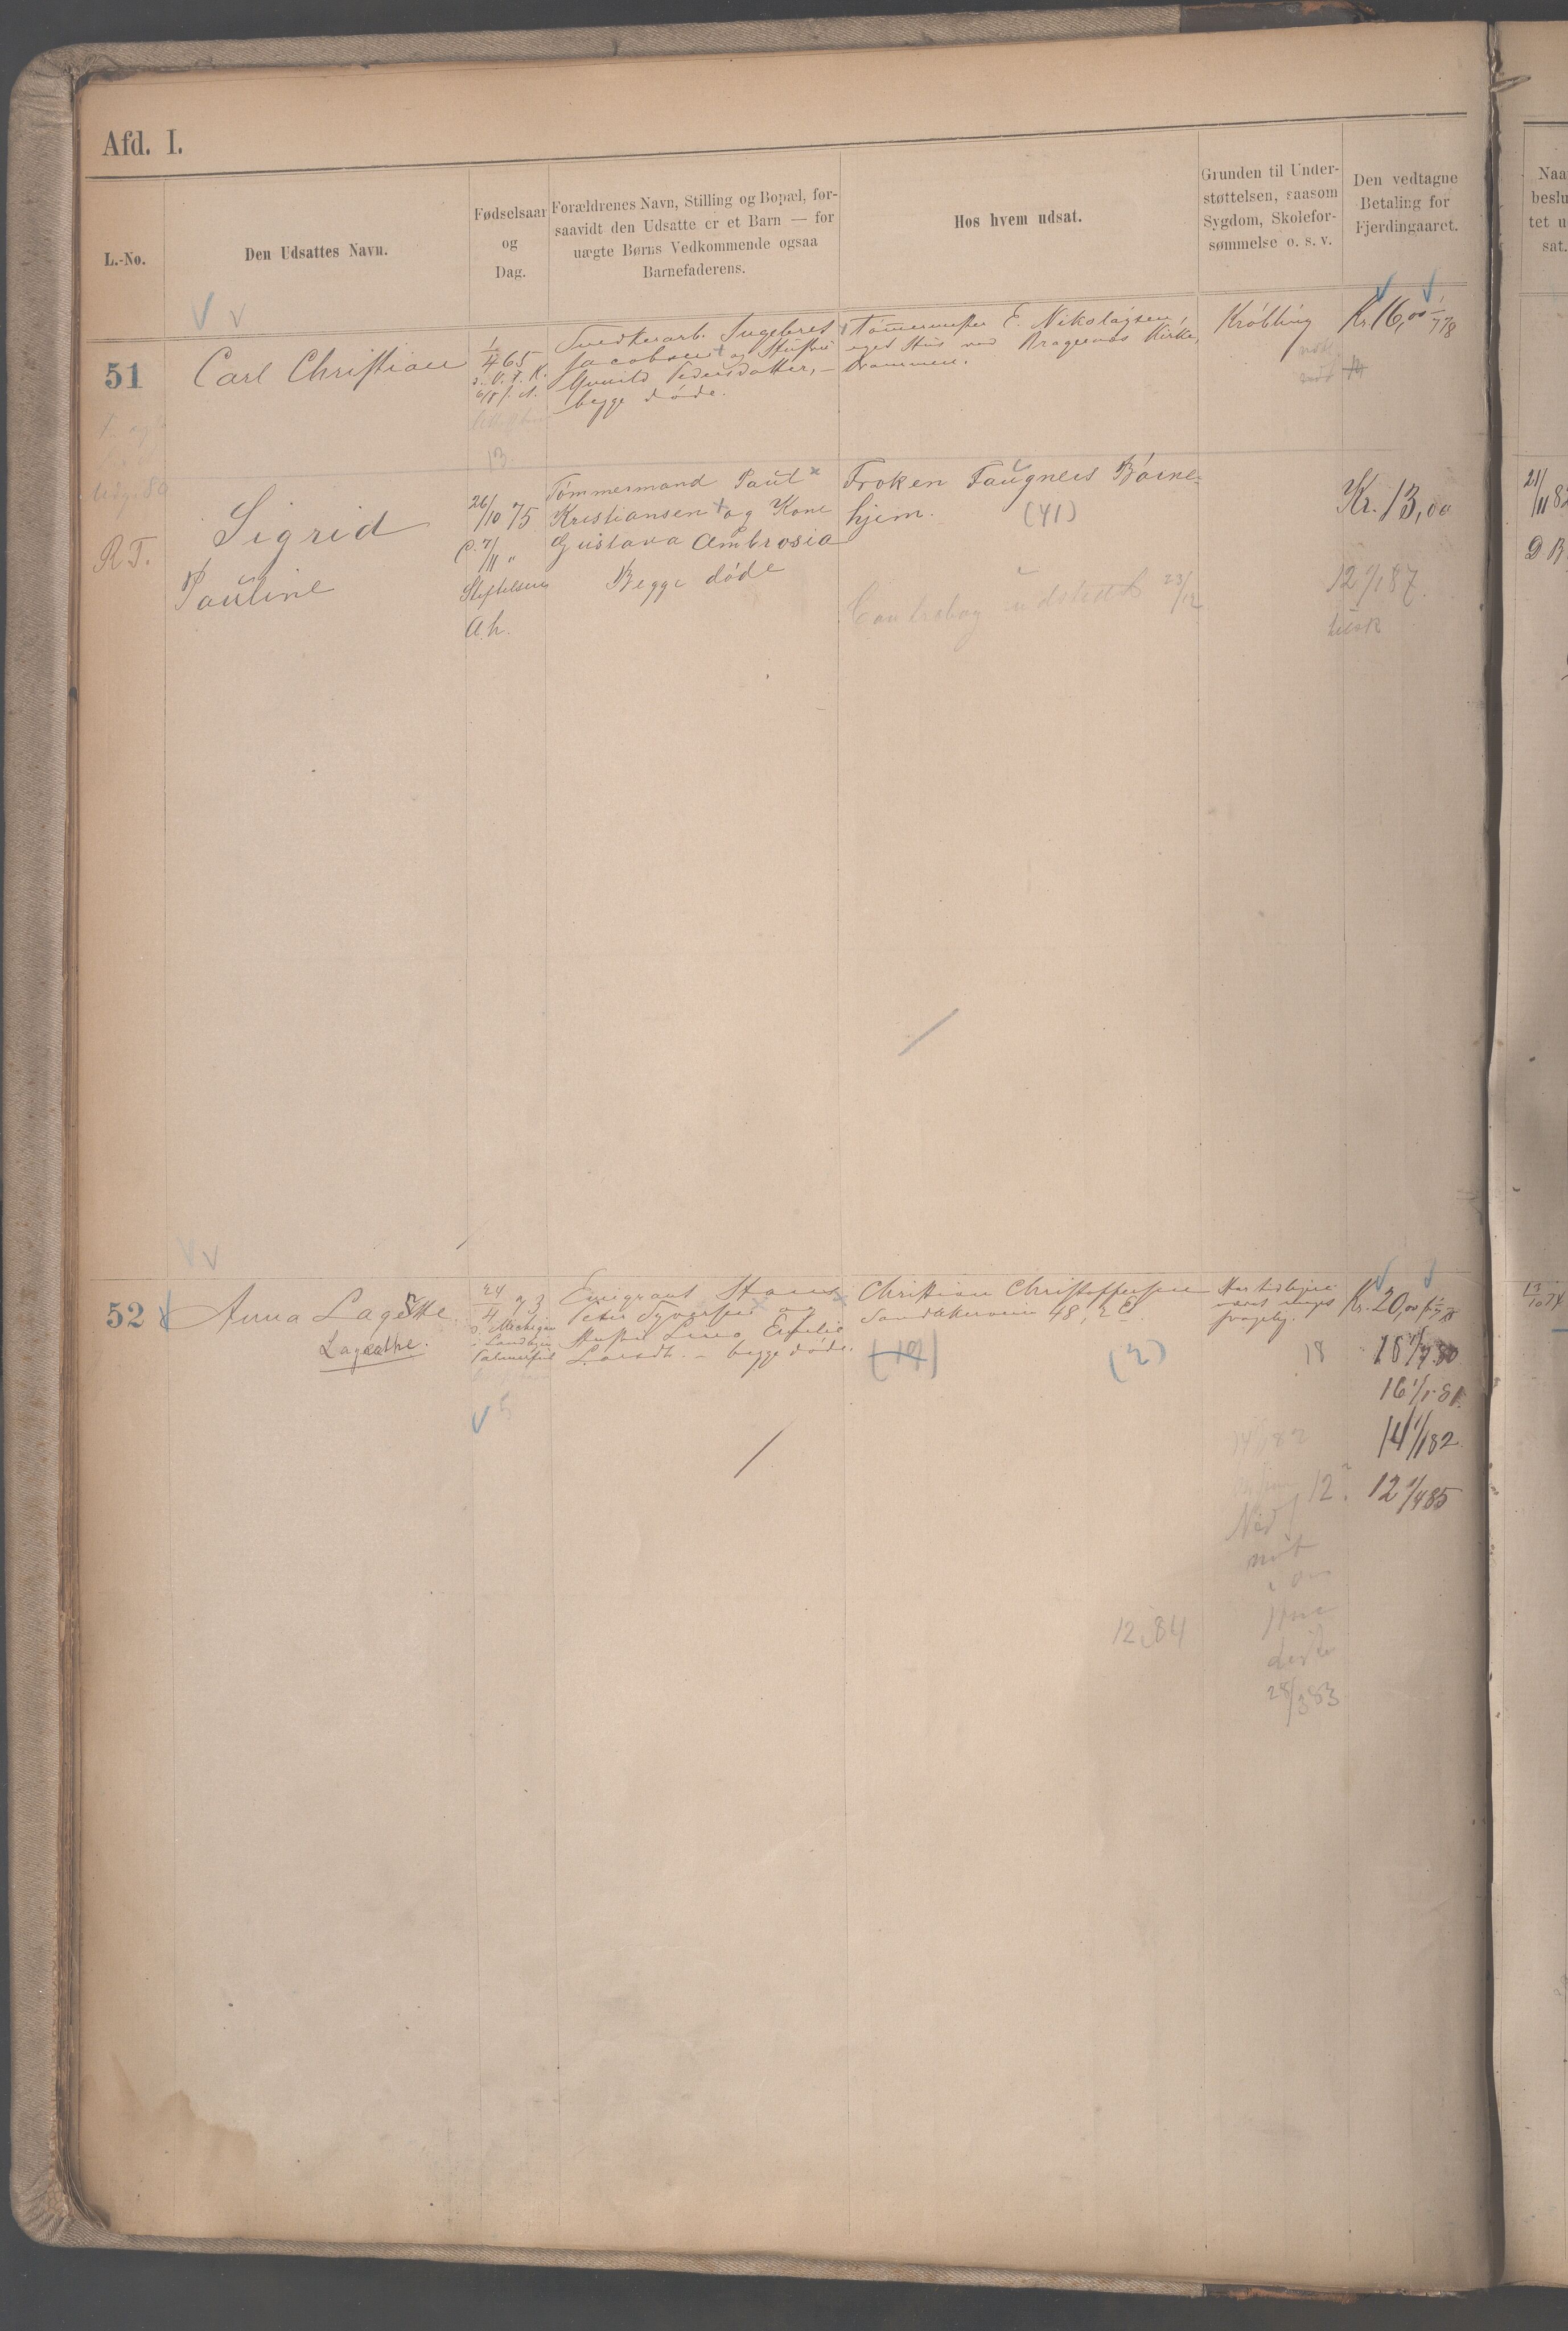 Afd. I.
L.-No.
Den Udsattes Navn.
Fødselsaar
og
Dag.
Forældrenes Navn, Stilling og Bopæl, for-
saavidt den Udsatte er et Barn — for
uægte Børns Vedkommende ogsaa
Barnefaderens.
Hos hvem udsat.
Grunden til Under-
støttelsen, saasom
Sygdom, Skolefor-
sømmelse o. s. v.
Den vedtagne
Betaling for
Fjerdingaaret.
Naa
beslu
tet u
sat.
51
Carl Christian
1/4 65
Snedkerarb. Ingebret
Jacobsen og Hustru
Gunild Pedersdatter, –
begge døde.
Tømermester E. Nikolaysen,
eget Hus ved Bragernes Kirke,
Drammen.
Krøbling
Kr. 16,00 1/7 78
13.
R T.
Sigrid
Pauline
26/10 75
D. 7/11 "
Stiftelsen
A. h.
Tømmermand Paul
Kristiansen og Kone
Gustava Ambrosia
Begge døde
Frøken Faugners Børne-
hjem. (41)
Contrabog udstedt 23/12
Kr. 13,00
12 1/1 87.
21/11 82
D B
52
Anna Lagethe
Lagathe.
24/4 73
Emigrant Hans
Peter Syversen og
Hustru Lina Emilie
Larsdt. – begge døde.
Christian Christoffersen
Sandakerveien 48, 2 E.
(19) (2)
Har tidligere
været meget
svagelig.
Kr. 20,00 fr 1/7 78
18
18 1/7 80
16 1/1 81.
14 1/1 82
14/1 82
12?
12 1/4 85
12,84
28/3 83